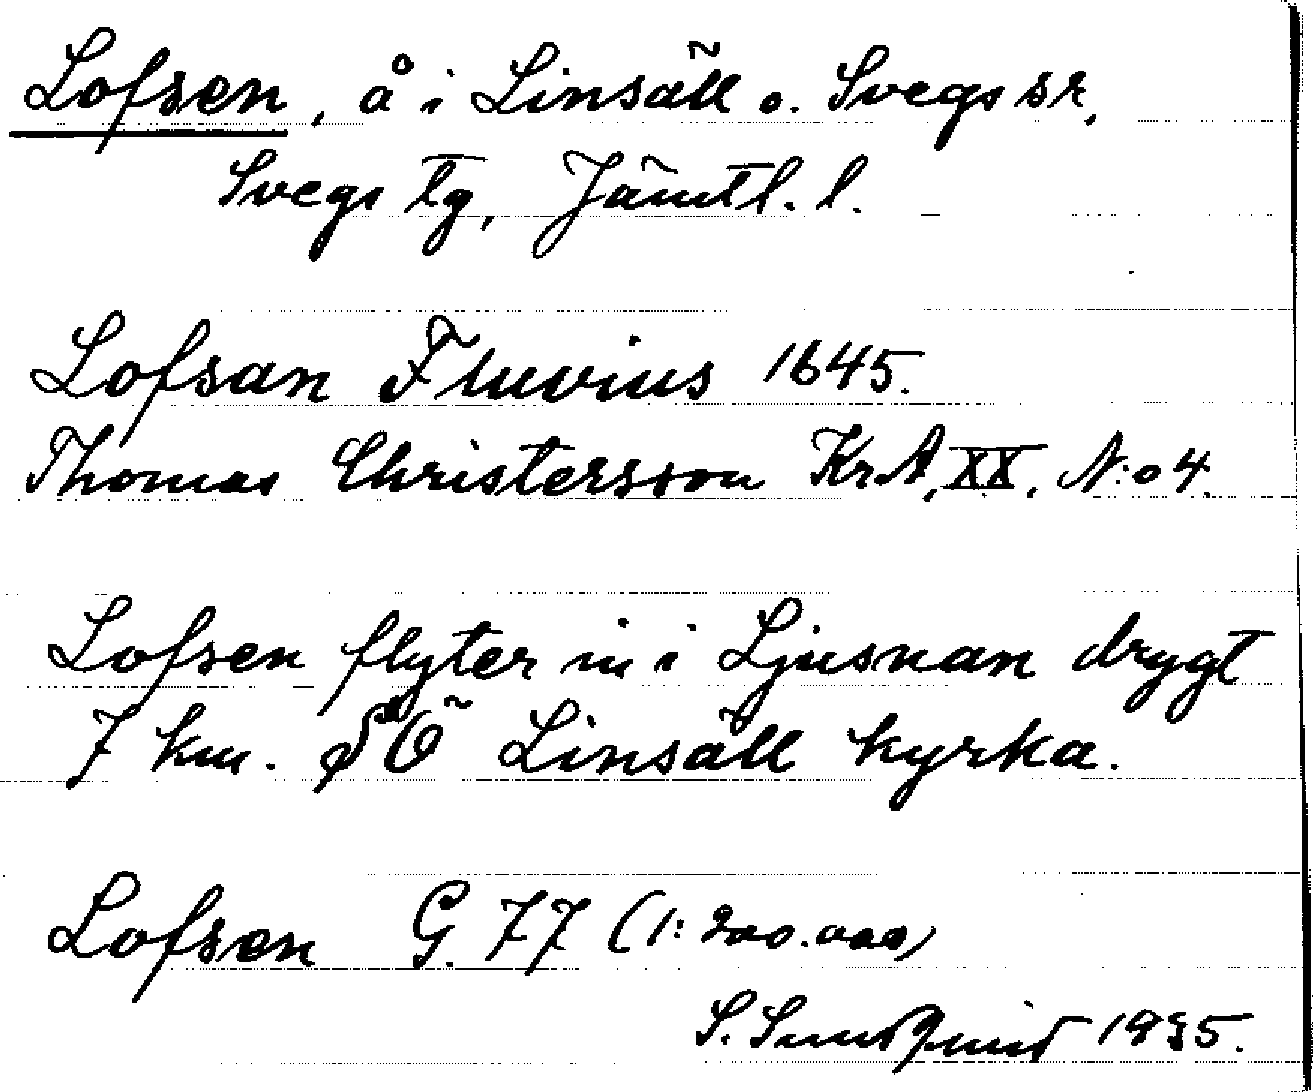 Lofsen, å i Linsäll o. Svegs sr,
Svegs tg, Jämtl. l.
Lofsan Fluvius 1645.
Thomas Christersson KrA, XX, N:o 4.
Lofsen flyter in i Ljusnan drygt
7 km. SÖ Linsäll kyrka.
Lofsen G. 77 (1:200.000)
S. Sundquist 1935.